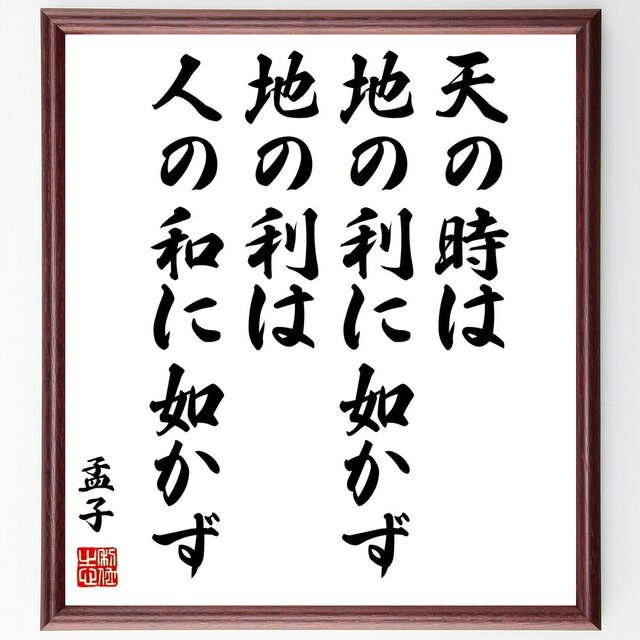 天の時は
地の利に如かず
地の利は
人の和に如かず
孟子